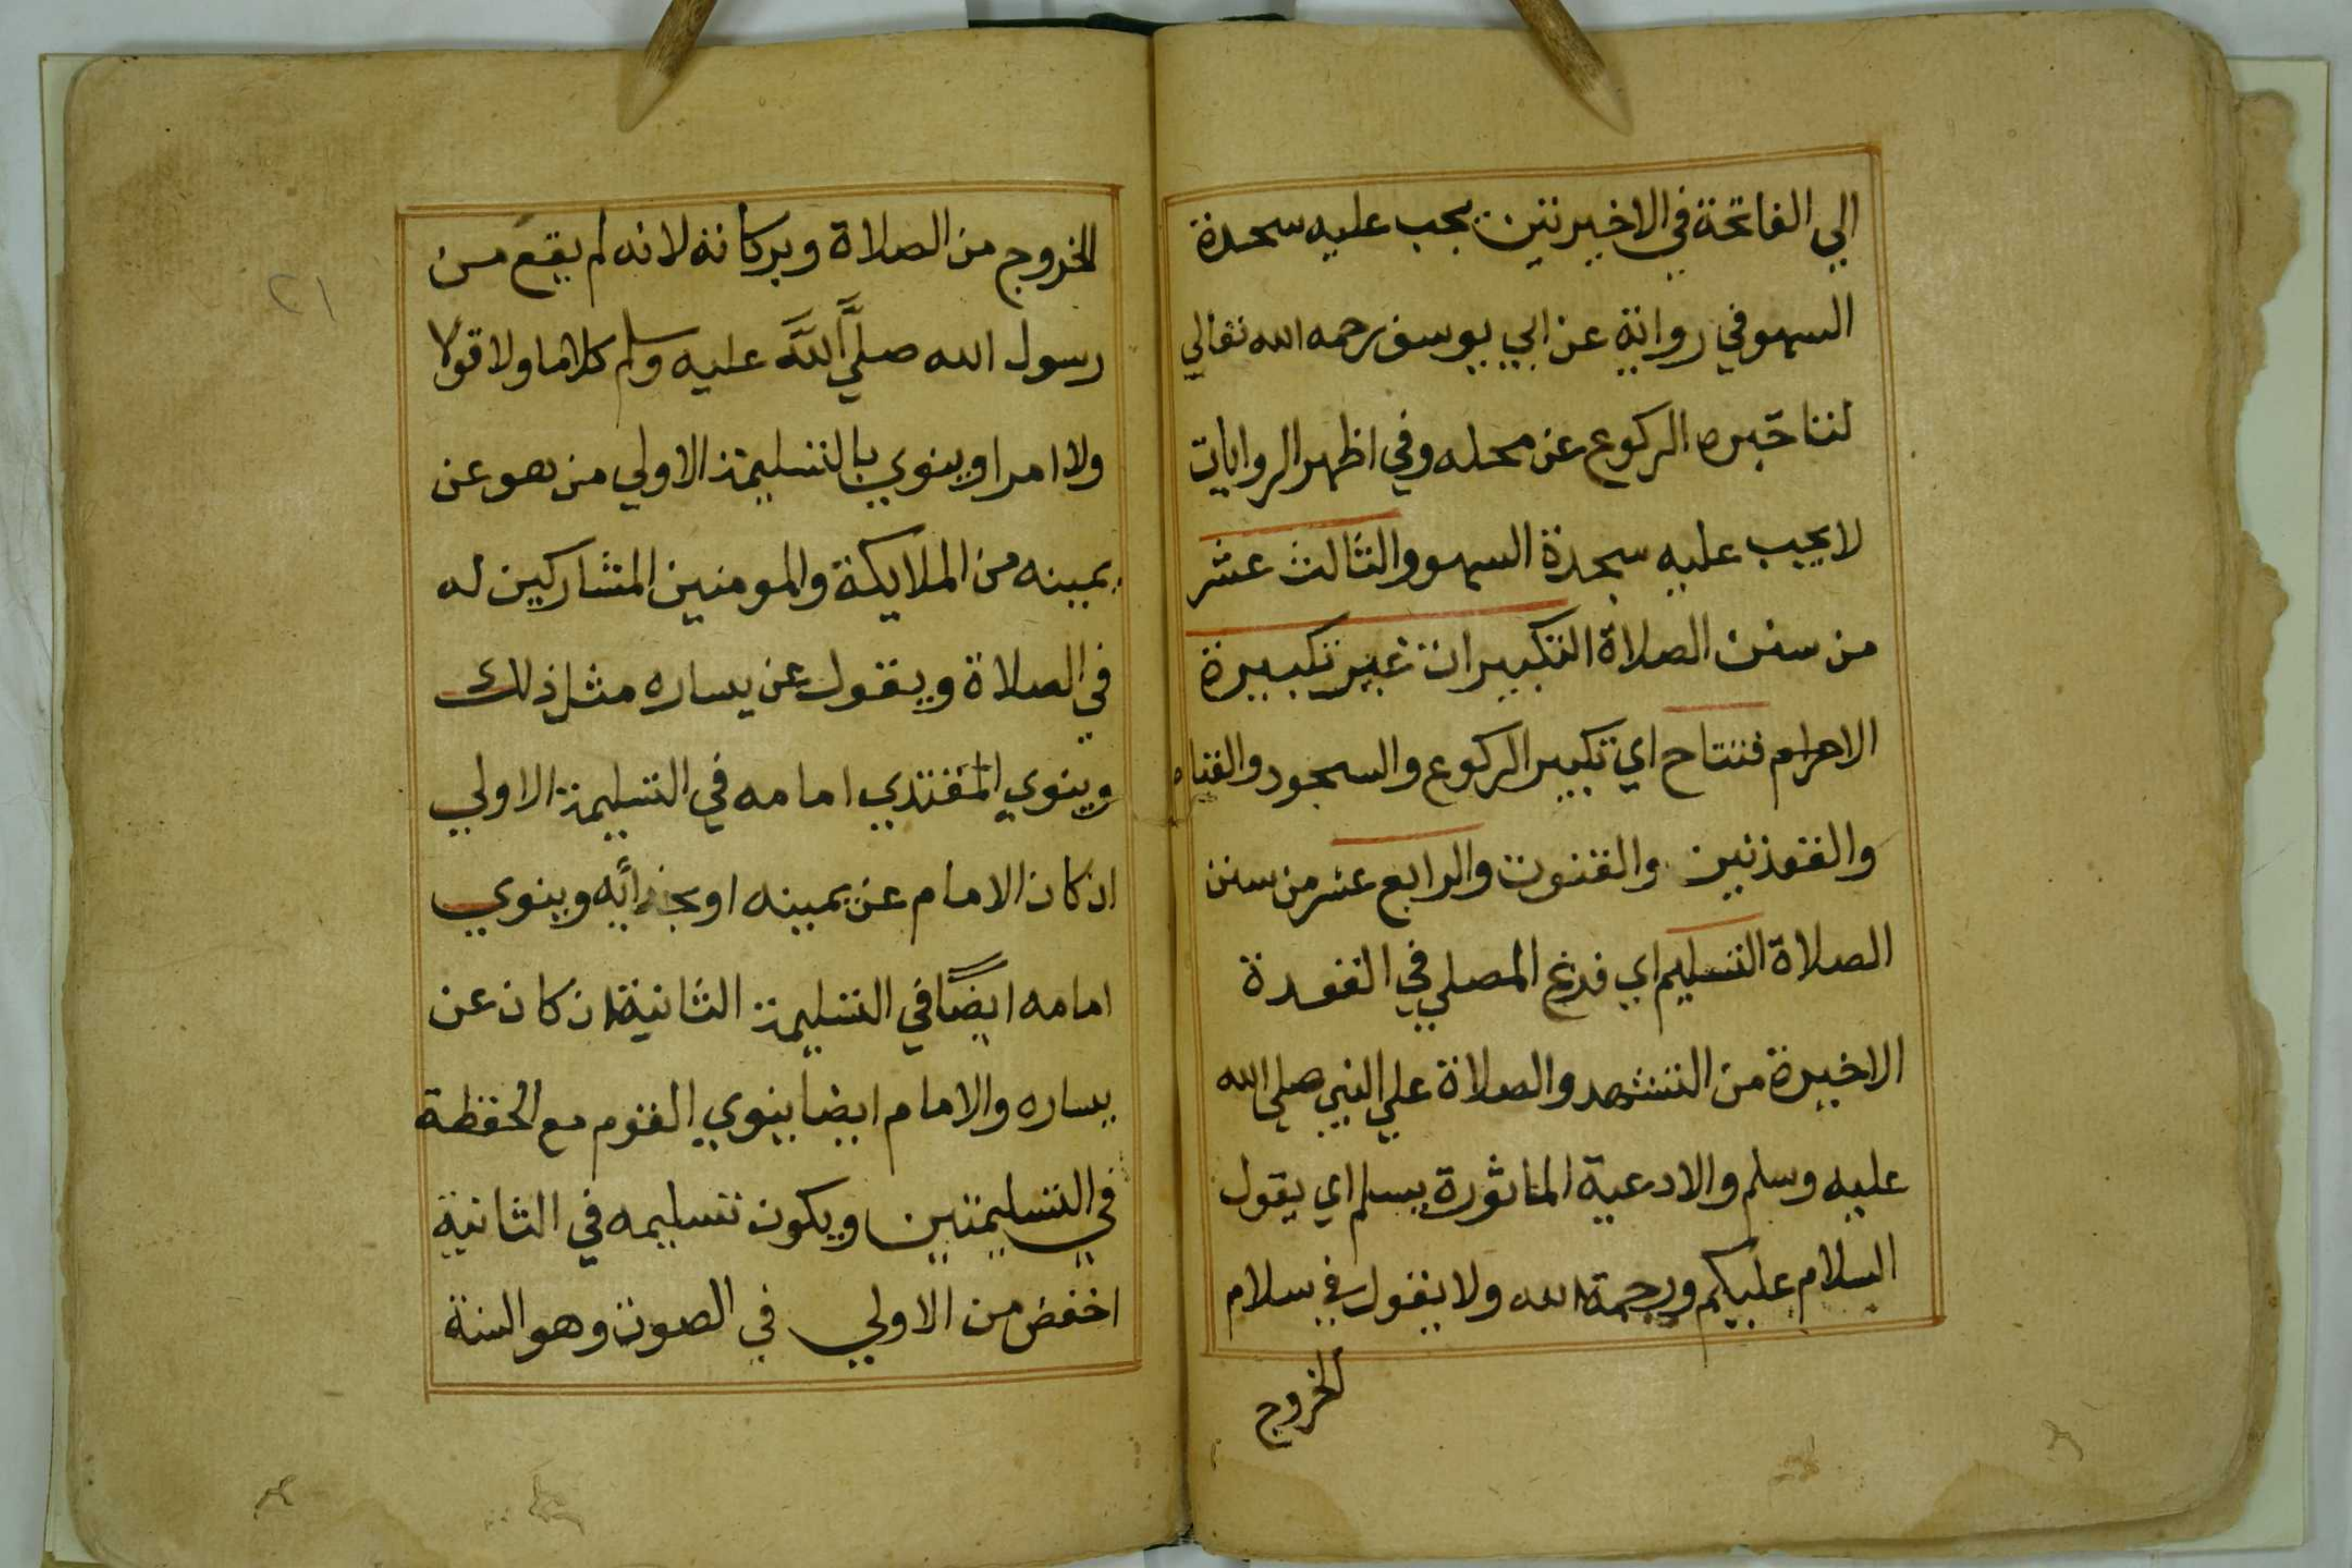 الي الفاتحة في الاخيرتين يجب عليه سجدة
السهو في رواية عن ابي يوسف رحمه الله تعالي
لتاخيره الركوع عن محله وفي اظهر الروايات
لا يجب عليه سجدة السهو والثالث عشر
من سنن الصلاة التكبيرات غير تكبيرة
الاحرام فتتاح اي تكبير الركوع والسجود والقيام
والقعدتين والقنوت والرابع عشر من سنن
الصلاة التسليم اي فرغ المصلي في القعدة
الاخيرة من التشهد والصلاة علي النبي صلي الله
عليه وسلم والادعية الماثورة يسلم اي يقول
السلام عليكم ورحمة الله ولا يقول في سلام
الخروج
الخروج من الصلاة وبركاته لانه لم يقع من
رسول الله صلي الله عليه وسلم كلاما ولا قولا
ولا امرا وينوي بالتسليمة الاولي من هو عن
يمينه من الملايكة والمومنين المشاركين له
في الصلاة ويقول عن يساره مثل ذلك
وينوي المقتدي امامه في التسليمة الاولي
ان كان الامام عن يمينه او بحذائه وينوي
امامه ايضًا في التسليمة الثانية ان كان عن
يساره والامام ايضا ينوي القوم مع الحفظة
في التسليمتين ويكون تسليمه في الثانية
اخفض من الاولي في الصوت وهو السنة
٢١